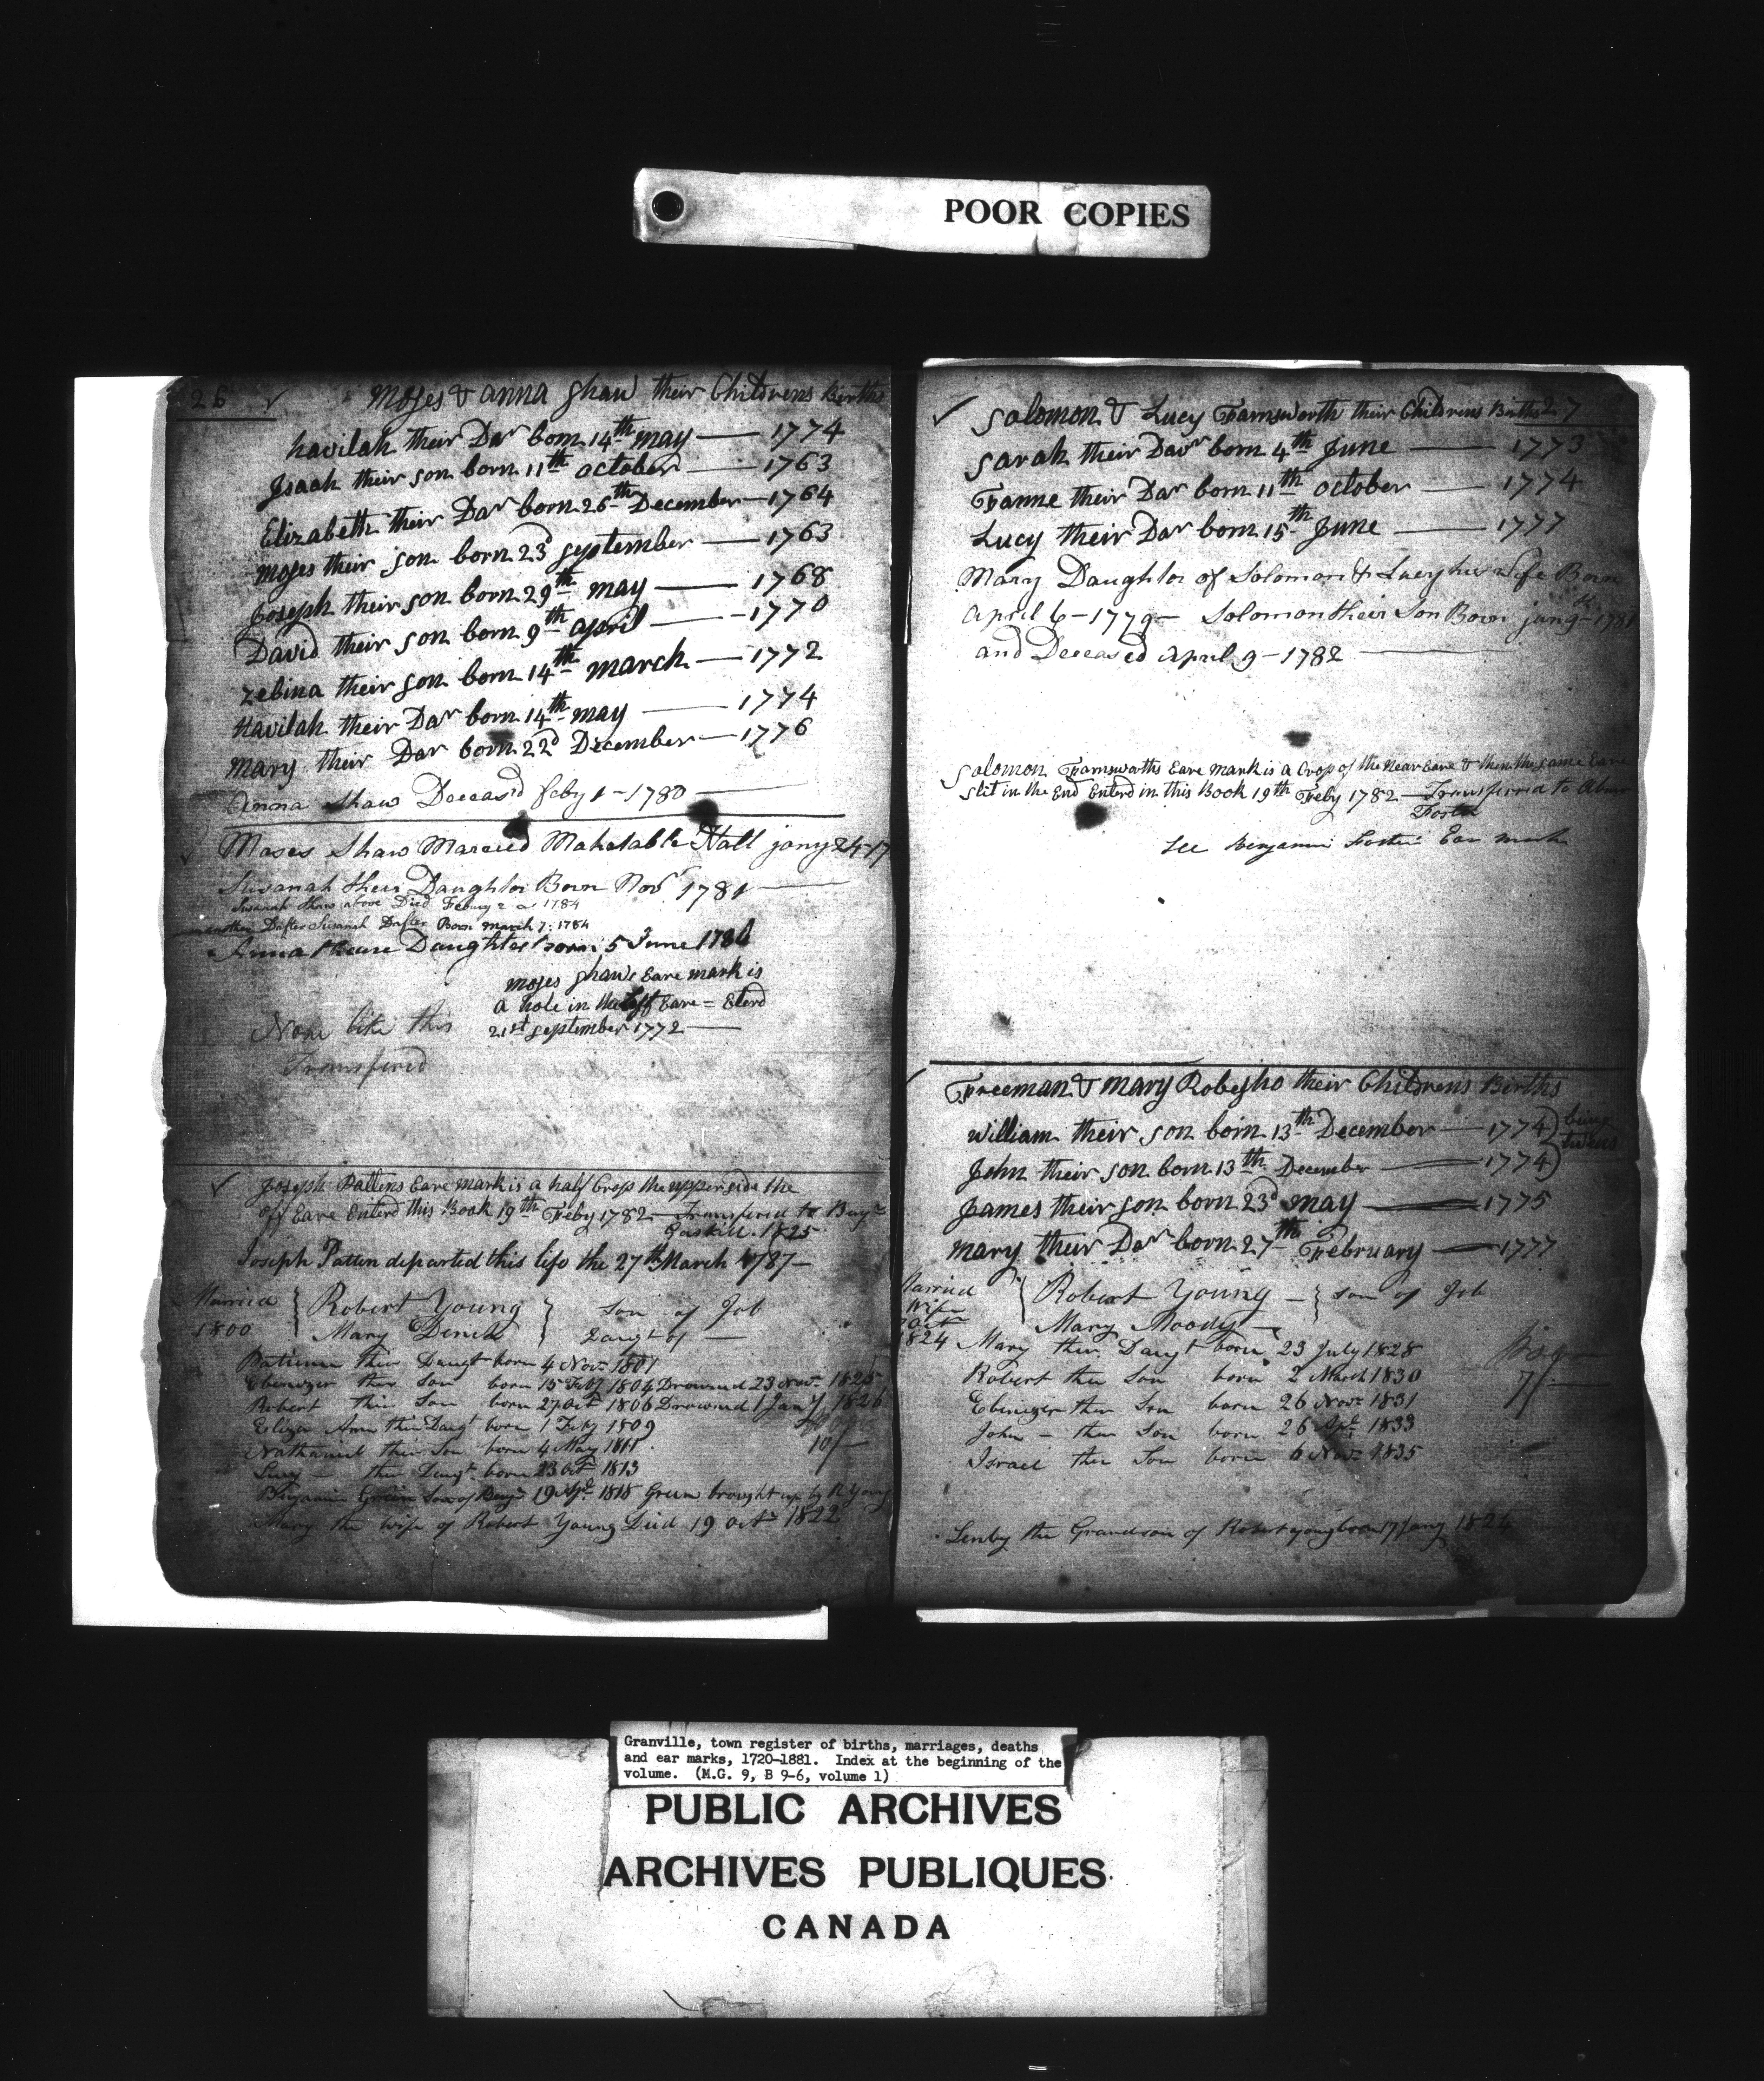 POOR COPIES
26 ✓ Moses & Anna Shaw their Childrens Births
havilah their Dar born 14th may — 1774
Isaah their son born 11th october — 1763
Elizabeth their Dar born 26th December — 1764
moses their son born 23d september — 1763
Joseph their son born 29th may — 1768
David their son born 9th april — 1770
zebina their son born 14th march — 1772
Havilah their Dar born 14th may — 1774
mary their Dar born 22d December — 1776
Anna Shaw Deceasd feby 1 - 1780 —
✓ Moses Shaw Married Mahetable Hall jany 24 - 17
Susanah their Daughter Born Nov 1781 —
Susanah Shaw above Died Febury 2 1784
another Dafter Susanah Dafter Born march 7: 1784
Anna Daughter born 5 June 1786
moses Shaws Eare mark is
a hole in the off Eare = Eterd
21st september 1772 —
None like this
Transfired
✓ Joseph Pattens Eare mark is a half Crop the upper side the
off Eare Enterd this Book 19th Feby 1782 — Transfired to Benjn
Gaskill. 1825
Joseph Patten departed this life the 27th March 1787 —
Married } Robert Young } Son of Job
1800 Mary Daught of —
Patience their Daught born 4 Nov 1801
Ebenezer their Son born 15 Feby 1804 Drowned 23 Nov 1825
Robert their Son born 27 Oct 1806 Drowned 1 Jany 1826
Eliza Ann their Daugt born 1 Feby 1809
Nathaniel their Son born 4 May 1811
10/—
Lucy — their Daugt born 23 Oct 1813
Benjamin Green Son of Benjn 19 Apl 1818 Green brought up by R Young
Mary the Wife of Robert Young Died 19 Octr 1822
✓ Solomon & Lucy Farnsworth their Childrens Births 27
Sarah their Davr born 4th June — 1773
Fanne their Dar born 11th october — 1774
Lucy their Dar born 15th June — 1777
Mary Daughter of Solomon & Lucy his wife Born
April 6 - 1779 - Solomon their Son Born jan 9 - 1781
and Deceased april 9 - 1782 —
Solomon Farnsworths Eare mark is a Crop of the Near Eare & then the same Eare
Slit in the End Enterd in this Book 19th Feby 1782 — Transfired to
Foster
See Benjamin Fosters Ear mark
✓ Freeman & mary Robesho their Childrens Births
william their son born 13th December — 1774 } being
John their son born 13th December — 1774 } twins
James their son born 23d may — 1775
mary their Dar born 27th February — 1777
Married { Robert Young — } Son of Job
Wife
Oct Mary Moody —
1824 Mary their Daugt born 23 July 1828
Robert ther Son born 2 March 1830
7/—
Ebenezer ther Son born 26 Nov 1831
John — ther Son born 26 Apl 1833
Israel ther Son born 6 Nov 1835
the Grandson of Robert young born 17 Jany 1824
Granville, town register of births, marriages, deaths
and ear marks, 1720-1881. Index at the beginning of the
volume. (M.G. 9, B 9-6, volume 1)
PUBLIC ARCHIVES
ARCHIVES PUBLIQUES
CANADA